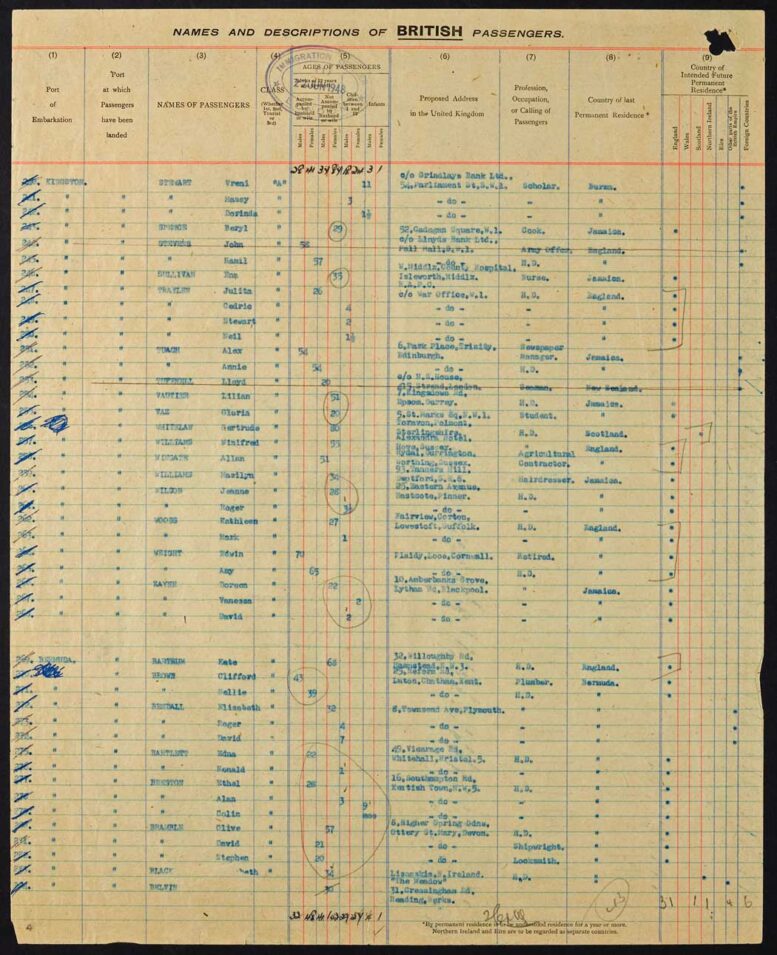 NAMES AND DESCRIPTIONS OF BRITISH PASSENGERS.
(1) (2) (3) (4) (5) (6) (7) (8) (9)
Port of Embarkation
Port at which Passengers have been landed
NAMES OF PASSENGERS
CLASS
AGES OF PASSENGERS
Proposed Address in the United Kingdom
Profession, Occupation, or Calling of Passengers
Country of last Permanent Residence*
Country of Intended Future Permanent Residence*
Males Females Males Females Males Females Infants
England Wales Scotland Northern Ireland Eire Foreign Countries
IMMIGRATION
1948
c/o Grindlays Bank Ltd.,
KINGSTON. " STEWART Vreni "A" 11 54, Parliament St, S.W.1. Scholar. Burma.
" " " Massy " 3 - do - "
" " " Dorinda " 1½ - do - "
" " SPENCE Beryl " 29 92, Cadogan Square, W.1. Cook. Jamaica.
c/o Lloyds Bank Ltd.,
" " STEVENS John " 58 Pall Mall, S.W.1. Army Offcr. England.
" " " " 57 - do - H.D. "
W. Middlx. County Hospital,
" " SULLIVAN Ena " 35 Isleworth, Middlx. Nurse. Jamaica.
" " TRAYLEN Julita " 26 c/o War Office, W.1. H.D. England.
" " " Cedric " 4 - do - "
" " " Stewart " 2 - do - "
" " " Neil " 1½ - do - "
6, Park Place, Trinity, Newspaper
" " TUACH Alex " 54 Edinburgh. Manager. Jamaica.
" " " Annie " 54 - do - H.D. "
c/o N.Z. House,
" " Lloyd " 20 415, Strand, London. Seaman. New Zealand.
7, Kingsdown Rd,
" " VAUTIER Lilian " 51 Epsom, Surrey. H.D. Jamaica.
" " VAZ Gloria " 20 5, St. Marks Sq, N.W.1. Student. "
" " WHITELAW Gertrude " 60 Stirlingshire. H.D. Scotland.
Alexandra Hotel,
" " WILLIAMS Winifred " 55 Hove, Sussex. " England.
Rydal, Durrington, Agricultural
" " WINGATE Allan " 51 Worthing, Sussex. Contractor. "
93, Tanners Hill,
" " WILLIAMS Marilyn " 34 Deptford, S.E.8. Hairdresser. Jamaica.
25, Eastern Avenue,
" " WILSON Jeanne " 28 Eastcote, Pinner. H.D. "
" " " Roger " 3½ - do - "
Fairview, Corton,
" " WOODS Kathleen " 27 Lowestoft, Suffolk. H.D. England.
" " " Mark " 1 - do - "
" " WRIGHT Edwin " 70 Plaidy, Looe, Cornwall. Retired. "
" " " Amy " 65 - do - H.D. "
10, Amberbanks Grove,
" " KAYES Doreen " 22 Lytham Rd, Blackpool. " Jamaica.
" " " Vanessa " 2 - do - "
" " " David " 2 - do - "
32, Willoughby Rd,
BERMUDA. " BARTRUM Kate " 68 Hampstead, N.W.3. H.D. England.
25, Reform Rd,
" " BROWN Clifford " 43 Luton, Chatham, Kent. Plumber. Bermuda.
" " " Nellie " 39 - do - H.D. "
" " BENDALL Elizabeth " 32 8, Townsend Ave, Plymouth. " "
" " " Roger " 4 - do - "
" " " David " 7 - do - "
49, Vicarage Rd,
" " BARTLETT Edna " 22 Whitehall, Bristol.5. H.D. "
" " " Ronald " 1 - do - "
16, Southampton Rd,
" " BEESTON Ethel " 28 Kentish Town, N.W.5. H.D. "
" " " Alan " 3 - do - "
" " " Colin " 9 mos - do - "
6, Higher Spring Gdns,
" " BRAMBLE Olive " 57 Ottery St. Mary, Devon. H.D. "
" " " David " 21 - do - Shipwright. "
" " " Stephen " 20 - do - Locksmith. "
" " BLACK " 34 N. Ireland. H.D. "
"The Meadow"
" " BELVIN " 30 31, Cressingham Rd, "
Reading, Berks.
31 1 1 4 6
*By permanent residence is to be understood residence for a year or more.
Northern Ireland and Eire are to be regarded as separate countries.
4